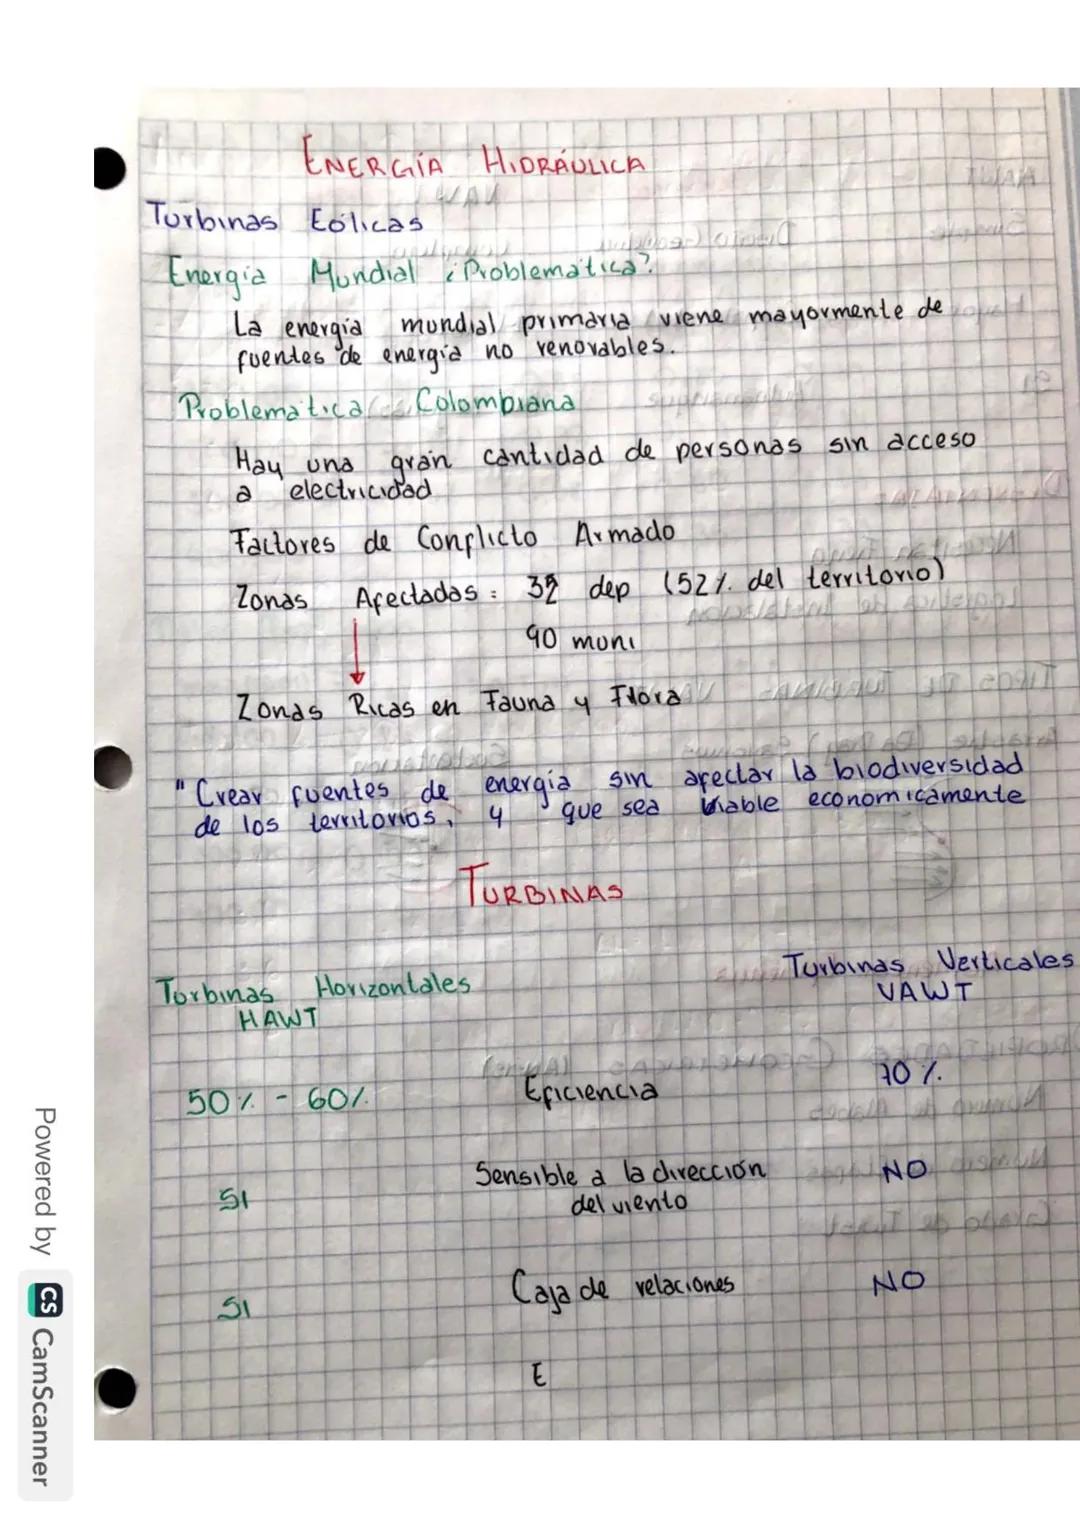 ENERGÍA HIDRÁULICA
Turbinas Eólicas
Energía Mundial ¿Problemática?
La energía mundial primaria viene mayormente de
fuentes de energía no renovables.
Problemática Colombiana
Hay una gran cantidad de personas sin acceso
a electricidad
Factores de Conflicto Armado
Zonas Afectadas : 32 dep (52% del territorio)
90 muni
Zonas Ricas en Fauna y Flora
" Crear fuentes de energía sin afectar la biodiversidad
de los territorios, y que sea viable economicamente
TURBINAS
Turbinas Horizontales Turbinas Verticales
HAWT VAWT
50% - 60% Eficiencia 70%
SI Sensible a la dirección NO
del viento
SI Caja de relaciones NO
E
Powered by CS CamScanner